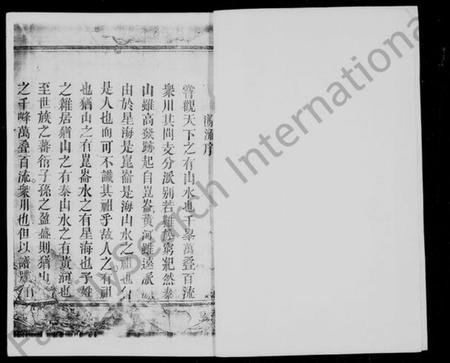 淵源序
嘗觀天下之有山水也千峯萬叠百流
衆川其間支分派別若難窮紀然泰
山雖高發跡起自崑崙黃河雖遠派
由於星海是崑崙是海山水之祖也
是人也而可不識其祖乎故人之有祖
也猶山之有崑崙水之有星海也子姓
之雜居猶山之有泰山水之有黃河也
至世族之蕃衍子孫之盈盛則猶山
之千峰萬叠百流衆川也但以譜
FamilySearch International